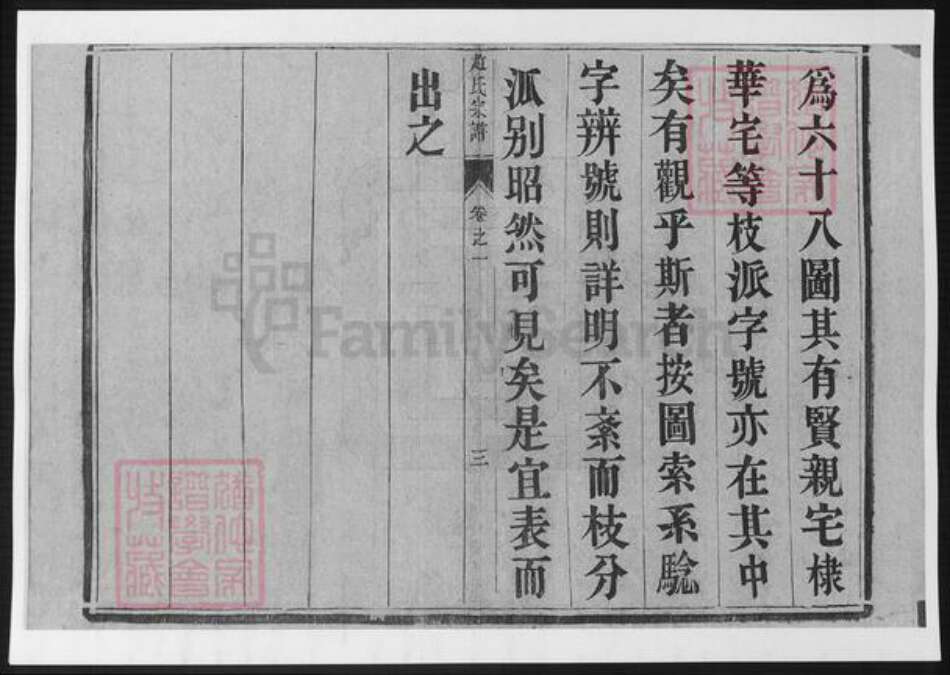 為六十八圖其有賢親宅棣
華宅等枝派字號亦在其中
矣有觀乎斯者按圖索系騐
字辨號則詳明不紊而枝分
派别昭然可見矣是宜表而
出之
趙氏宗譜
卷之一
三
FamilySearch